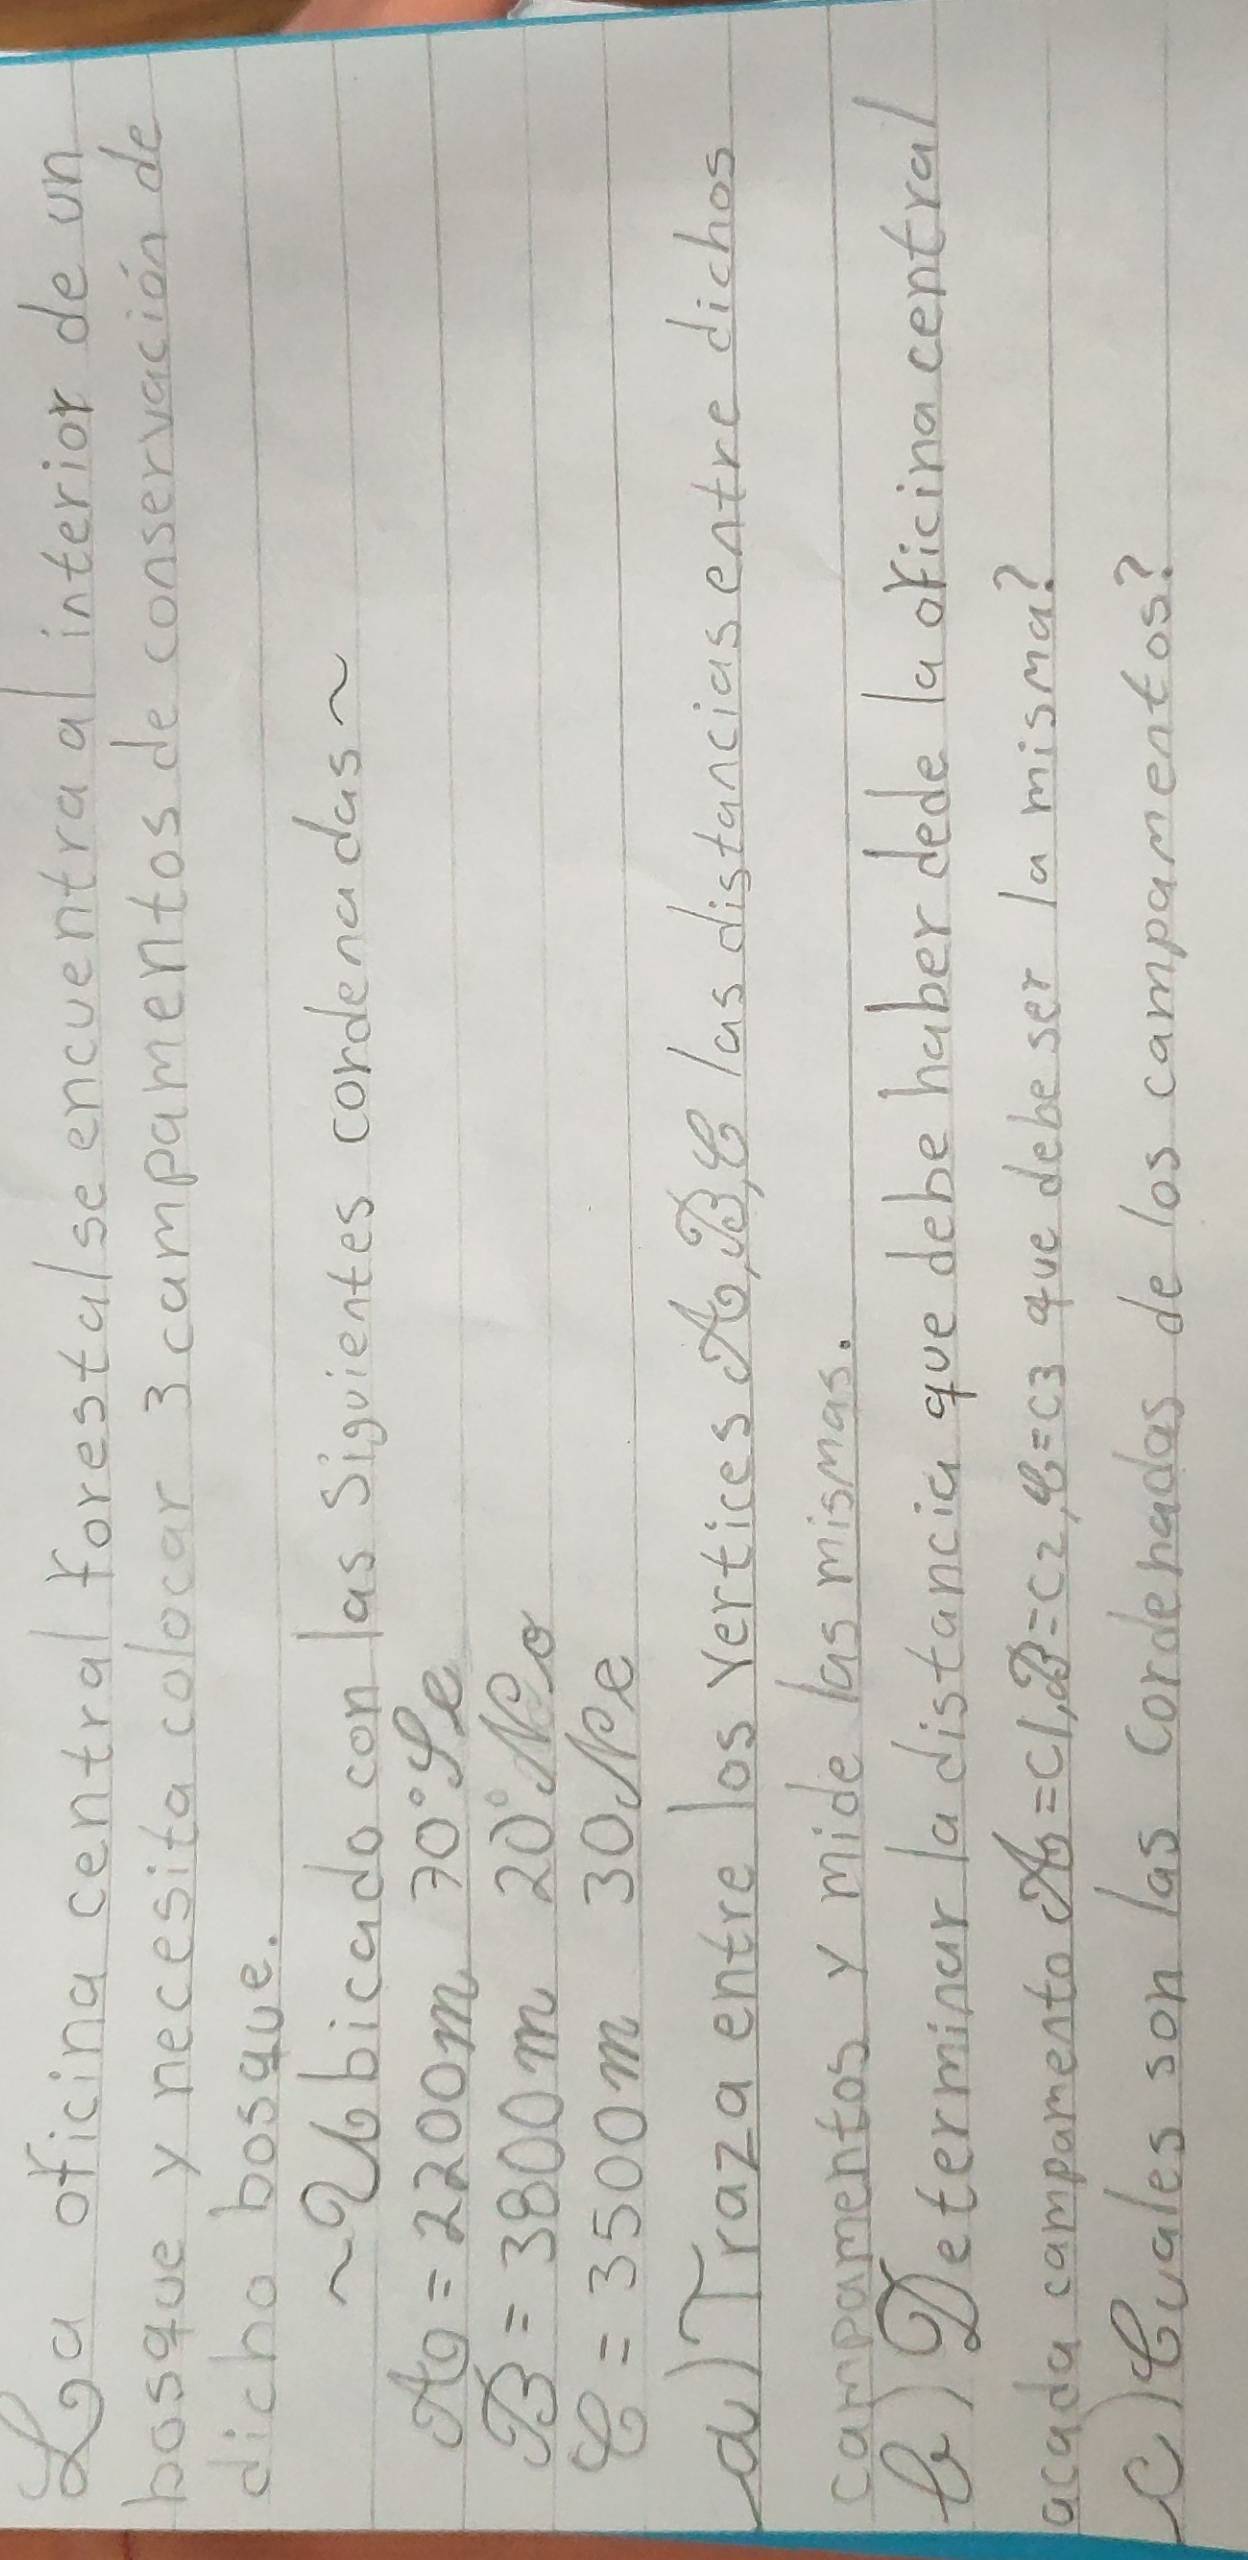 La oficina central forestal se encuentra al interior de un
bosque y necesita colocar 3 campamentos de conservación de
dicho bosque.
~Ubicado con las Siguientes cordenadas~
A=2200m 70° Se
B=3800m 20° No
C=3500m 30 Ne
a) Traza entre los vertices A, B, C las distancias entre dichos
campamentos y mide las mismas.
b) Determinar la distancia que debe haber dede la oficina central
acada campamento A=C1, B=C2, C=C3 que debe ser la misma?
c) Cuales son las Cordenadas de los campamentos?